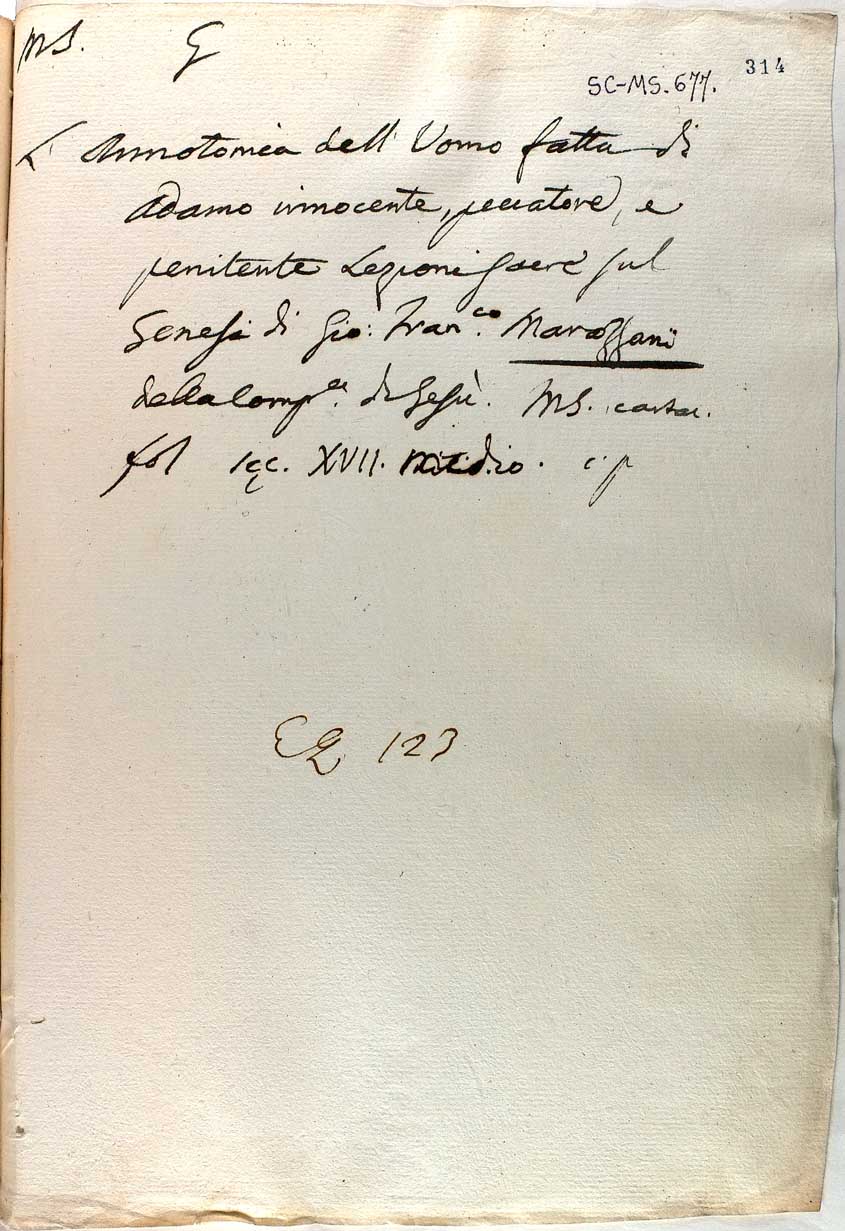 MS. G
SC-MS. 677. 314
L' Annotomia dell' Uomo fatta di
Adamo innocente, peccatore, e
penitente Lezioni Sacre sul
Genesi di Gio: Fran.co
della Comp.a di Gesù. MS. cartac.
fol sec. XVII. medio.
123